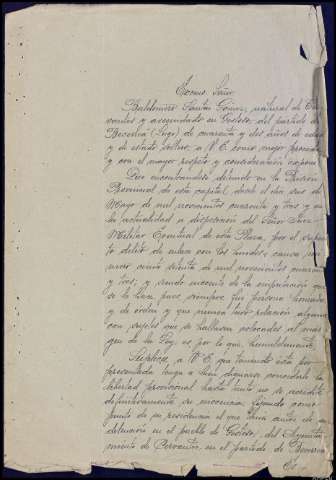 Excmo Señor
Baldomero Santin Gómez, natural de Cer-
vantes y avecindado en Quindous, del partido de
Becerreá (Lugo) de cuarenta y dos años de edad
y de estado soltero, a V. E. como mejor proceda
y con el mayor respeto y consideración expone:
Que encontrándose detenido en la Prisión
Provincial de esta capital, desde el día seis de
Mayo de mil novecientos cuarenta y tres y que
en la actualidad a disposición del Señor Juez
Militar Eventual de esta Plaza, por el supuesto
delito de enlace con los huidos, causa
número ciento setenta de mil novecientos cuarenta
y tres; y siendo inocente de la imputación que
se le hace pues siempre fué persona honrada
y de orden y que nunca tuvo relación alguna
con sujetos que se hallaren colocados al mar-
gen de la Ley, es por lo que, humildemente
Suplica, a V. E. que teniendo esta por
presentada tenga a bien dignarse concederle la
libertad provisional hasta tanto no se acredite
definitivamente su inocencia, fijando como
punto de su residencia el que tenía antes de su
detención en el pueblo de, del Ayunta-
miento de Cervantes, en el partido de Becerreá